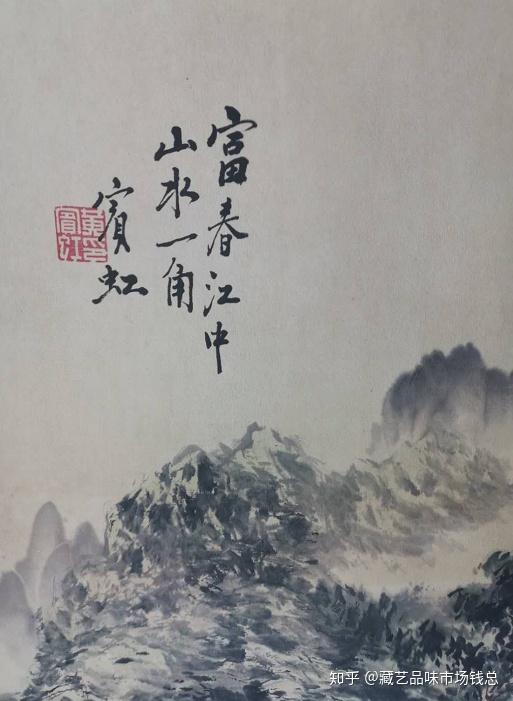 富春江中
山水一角
賓虹
黃賓虹印
知乎 @藏艺品味市场钱总